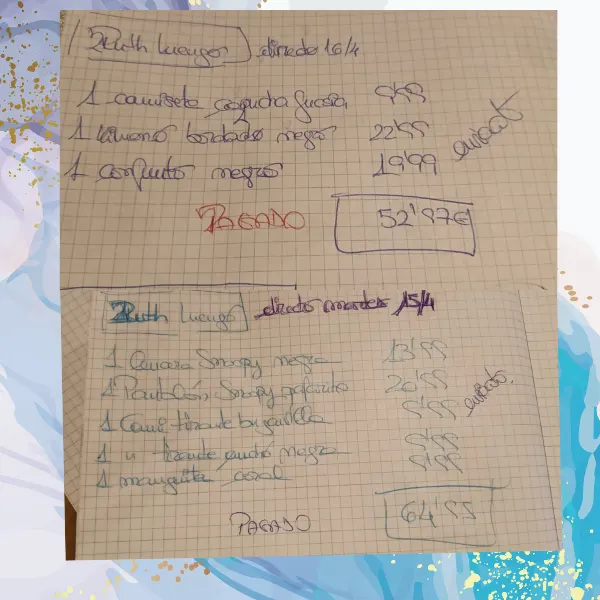 Ruth Luengo directo 16/4
1 camiseta capucha fucsia 9'99
1 kimono bordado negro 22'99
1 conjunto negro 19'99
avisada
PAGADO 52'97€
Ruth Luengo directo martes 15/4
1 Snoopy negra 13'99
1 Pantalón Snoopy grafito 20'99
1 Cami tirante 9'99
avisada
1 " tirante ancho negra 9'99
1 manguita coral 9'99
PAGADO 64'95